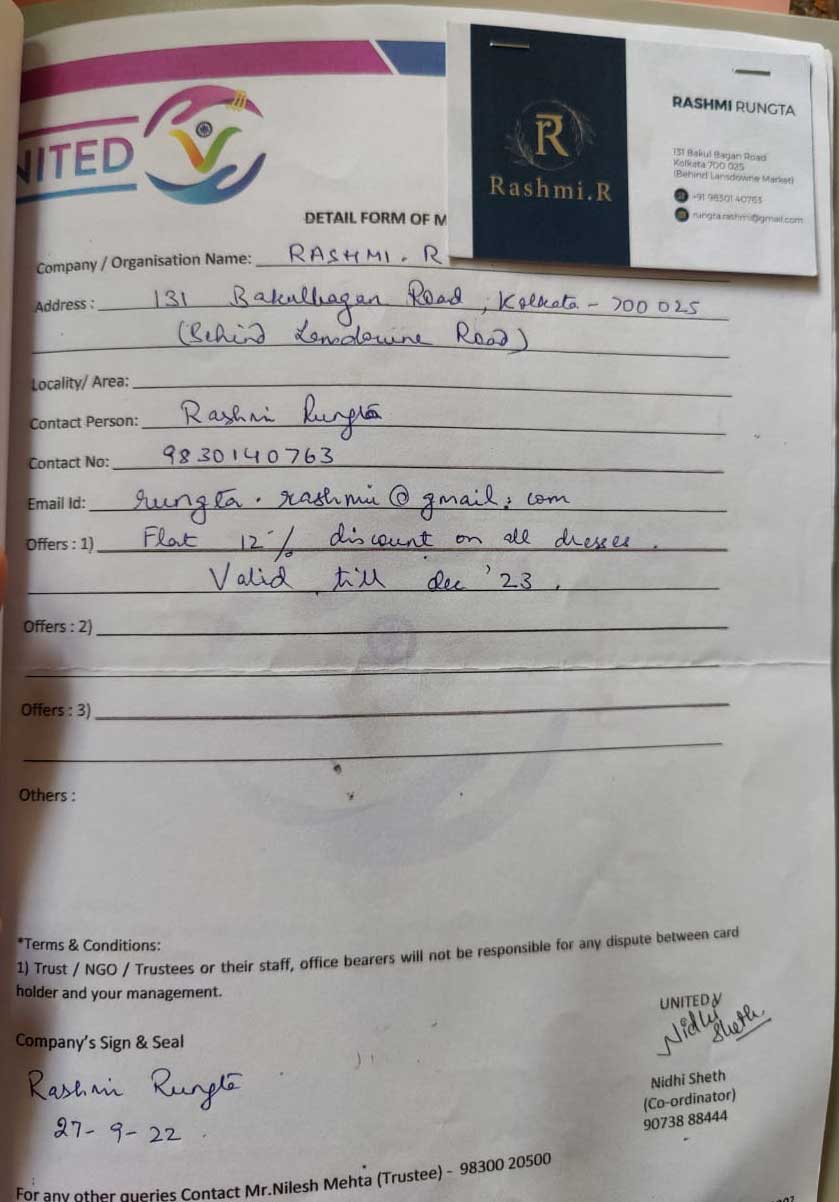 NITED
R
Rashmi.R
RASHMI RUNGTA
131 Bakul Bagan Road
Kolkata 700 025
(Behind Lansdowne Market)
+91 98301 40763
rungta.rashmi@gmail.com
DETAIL FORM OF M
Company / Organisation Name: RASHMI . R
Address : 131 Bakulbagan Road, Kolkata - 700 025
(Behind Lansdowne Road)
Locality/ Area:
Contact Person: Rashmi Rungta
Contact No: 9830140763
Email Id: rungta.rashmi@gmail.com
Offers : 1) Flat 12% discount on all dresses.
Valid till dec '23.
Offers : 2)
Offers : 3)
Others :
*Terms & Conditions:
1) Trust / NGO / Trustees or their staff, office bearers will not be responsible for any dispute between card
holder and your management.
UNITED V
Nidhi Sheth.
Company's Sign & Seal
Rashmi Rungta
27-9-22.
Nidhi Sheth
(Co-ordinator)
90738 88444
For any other queries Contact Mr.Nilesh Mehta (Trustee) - 98300 20500